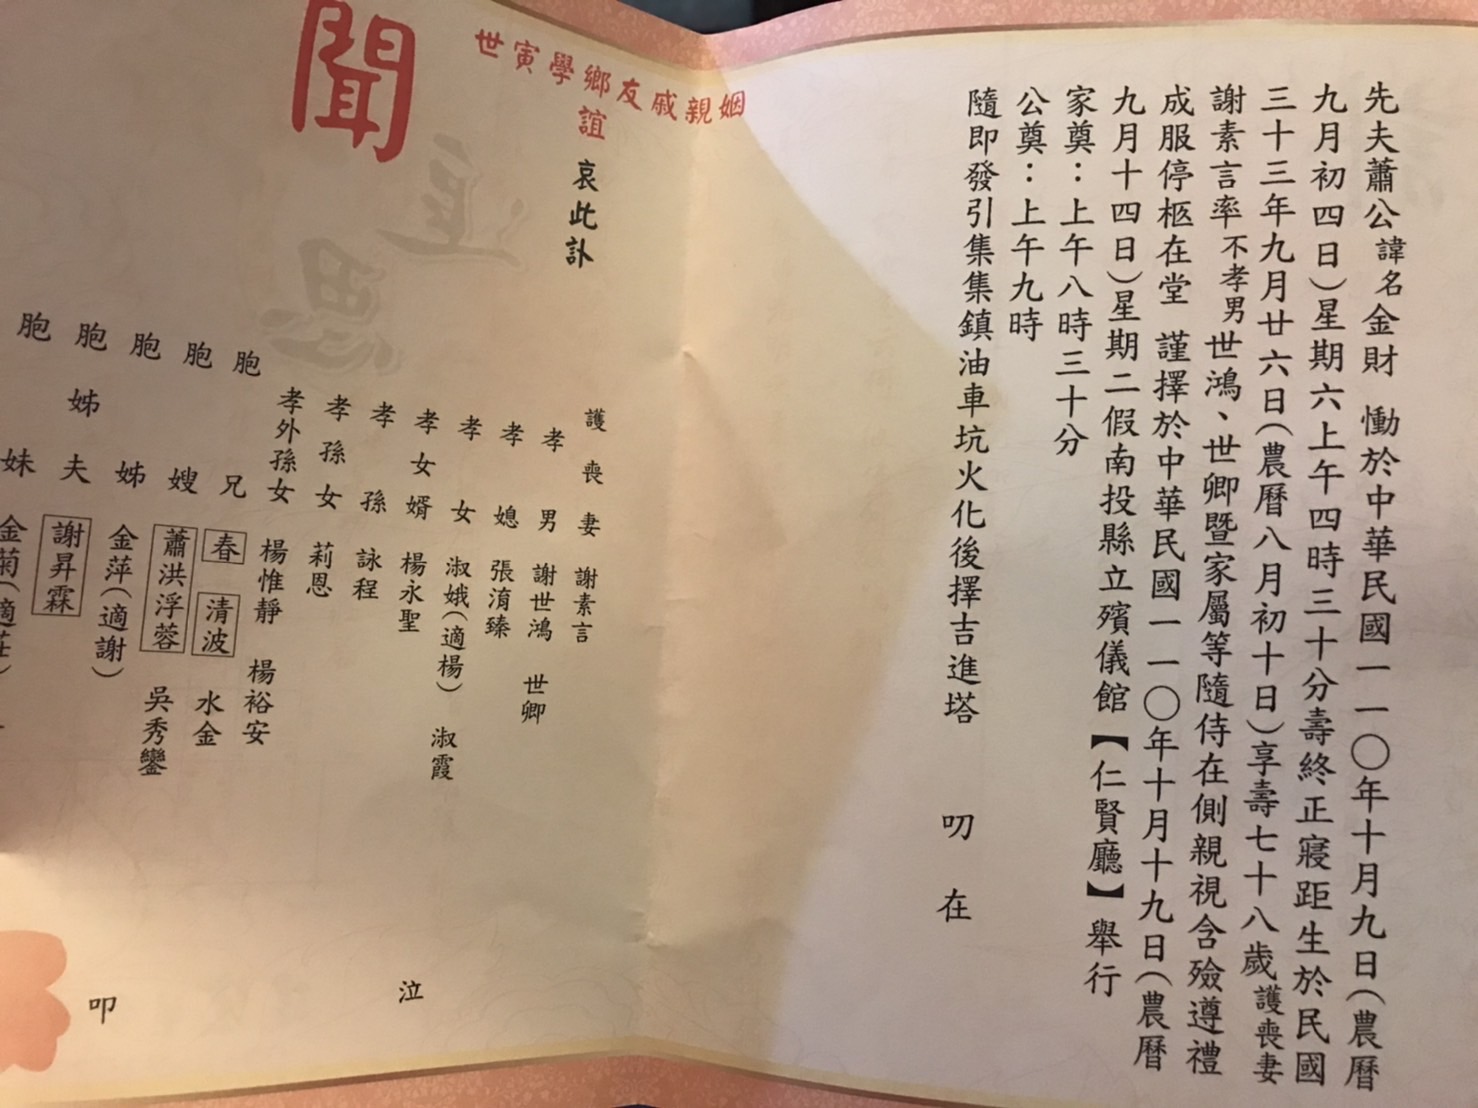 先夫蕭公諱名金財 慟於中華民國一一〇年十月九日(農曆
九月初四日)星期六上午四時三十分壽終正寢距生於民國
三十三年九月廿六日(農曆八月初十日)享壽七十八歲護喪妻
謝素言率不孝男世鴻、世卿暨家屬等隨侍在側親視含殮遵禮
成服停柩在堂 謹擇於中華民國一一〇年十月十九日(農曆
九月十四日)星期二假南投縣立殯儀館【仁賢廳】舉行
家奠：上午八時三十分
公奠：上午九時
隨即發引集集鎮油車坑火化後擇吉進塔 叨在
姻親戚友鄉學寅世
誼 哀此訃
聞
追思
護喪妻 謝素言
孝男 謝世鴻 世卿
孝媳 張湇臻
孝女 淑娥(適楊) 淑霞
孝女婿 楊永聖
孝孫 詠程
孝孫女 莉恩
孝外孫女 楊惟靜 楊裕安
胞兄 春 清波 水金
胞嫂 蕭洪浮蓉 吳秀鑾
胞姊 金萍(適謝)
胞姊夫 謝昇霖
胞妹 金菊(適莊)
泣
叩